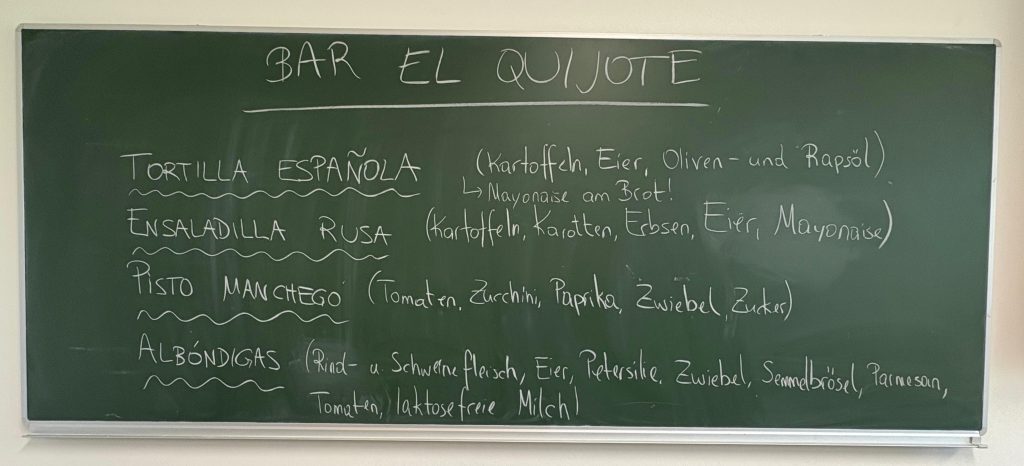 BAR EL QUIJOTE
TORTILLA ESPAÑOLA (Kartoffeln, Eier, Oliven- und Rapsöl)
↳ Mayonaise am Brot!
ENSALADILLA RUSA (Kartoffeln, Karotten, Erbsen, Eier, Mayonaise)
PISTO MANCHEGO (Tomaten, Zucchini, Paprika, Zwiebel, Zucker)
ALBÓNDIGAS (Rind- u. Schweinefleisch, Eier, Petersilie, Zwiebel, Semmelbrösel, Parmesan,
Tomaten, laktosefreie Milch)